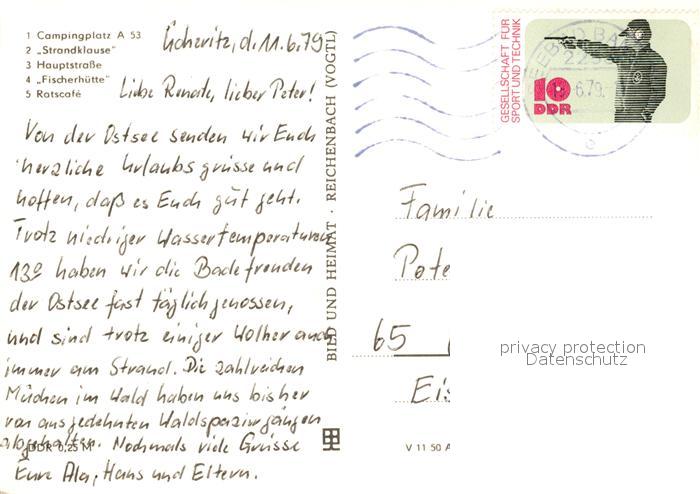 1 Campingplatz A 53
2 „Strandklause“
3 Hauptstraße
4 „Fischerhütte“
5 Ratscafé
Ückeritz, d. 11.6.79
Liebe Renate, lieber Peter!
Von der Ostsee senden wir Euch
herzliche Urlaubsgrüsse und
hoffen, daß es Euch gut geht.
Trotz niedriger Wassertemperaturen
13° haben wir die Badefreuden
der Ostsee fast täglich genossen,
und sind trotz einiger Wolken auch
immer am Strand. Die zahlreichen
Mücken im Wald haben uns bisher
von ausgedehnten Waldspaziergängen
abgehalten. Nochmals viele Grüsse
DDR 0,25 M
Eure Hans und Eltern.
BILD UND HEIMAT · REICHENBACH (VOGTL)
GESELLSCHAFT FÜR
SPORT UND TECHNIK
10
DDR
6.79
Familie
Pete
65
Eis
privacy protection
Datenschutz
V 11 50 A